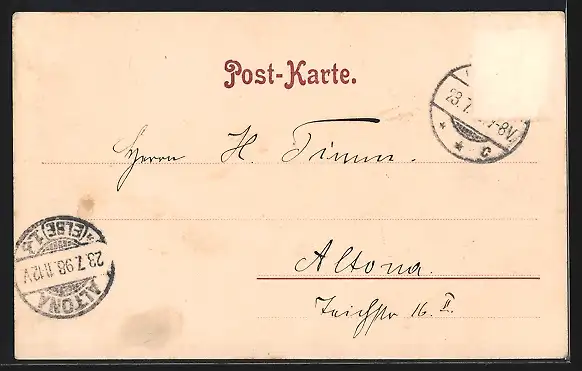 Post-Karte.
23.7. 7-8V.
* * c
Herrn H. Timm.
ALTONA (ELBE) 1 *
23.7.98.11-12V
Altona.
Teichstr 16. II.